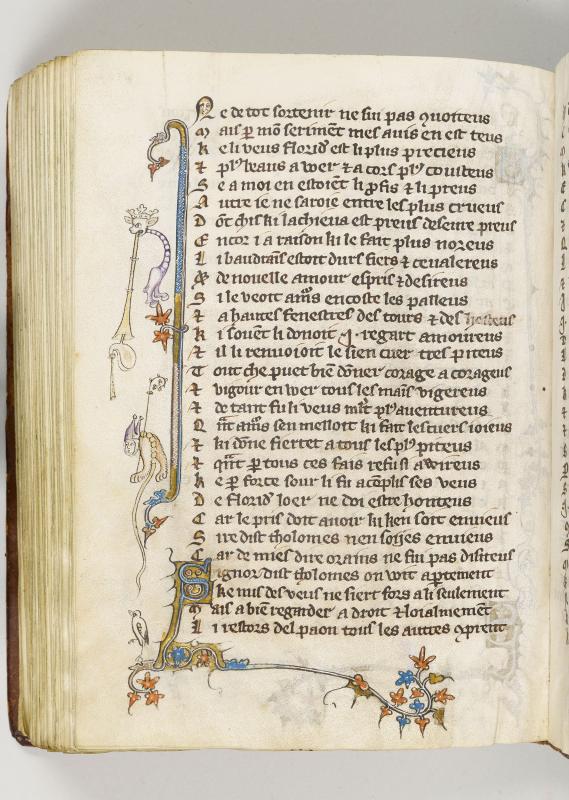 Ne de tot sortenir ne sui pas quoiteus
Mais p̄ mō seriment mes auis en est teus
Ke li veus florid' est li plus precieus
Et pl9 beaus a wer & a cors pl9 couiteus
Se a moi en estoiēt li p̄fis & li preus
Autre ie ne saroie entre les plus crueus
Dōt chis ki lachieua est preus deseure preus
Encor i a raison ki le fait plus noreus
Li baudrains estoit durs fiers & ceualereus
& de nouelle amour espris & desireus
Si le veoit am̄s encoste les palleus
Et a hautes fenestres des tours & des hosteus
Ki souēt li donoit .j. regart amoureus
Et il li renuoioit le sien cuer tres piteus
Tout che puet biē dōner corage a corageus
Et vigour en wer tous les mais vigereus
Et de tant fu li veus ml̄t pl9 auentureus
Qnt am̄s sen melloit ki fait les cuers ioieus
Et ki dōne fiertet a tous les pl9 piteus
Et qnt p̄ tous ces fais refusi awireus
Ke p̄ force sour li fu acēplis ses veus
De florid' loer ne doi estre honteus
Car le pris doit auoir ki ken soit enuieus
Sire dist tholomes nen soijes enuieus
Car de mies dire orains ne fui pas disiteus
Signor dist tholomes on voit aptement
Ke nus des veus ne siert fors a li seulement
Mais a bien regarder a droit & loialmēt
Li restors del paon tous les autres 9prent